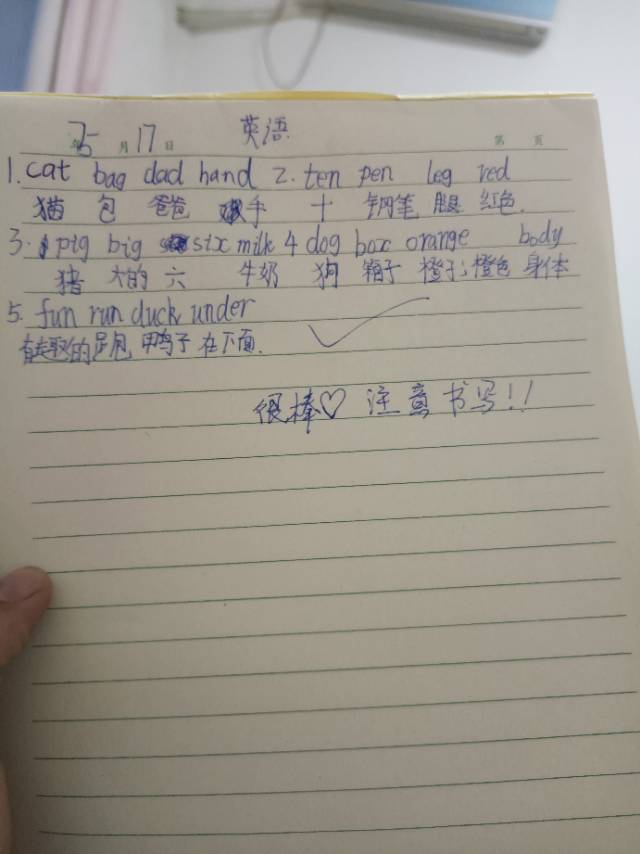 5月17日 英语 第 页
1. cat bag dad hand 2. ten pen leg red
猫 包 爸爸 手 十 钢笔 腿 红色.
3. pig big six milk 4 dog box orange body
猪 大的 六 牛奶 狗 箱子 橙子;橙色 身体
5. fun run duck under
有趣的 跑 鸭子 在下面.
很棒♡ 注意书写!!